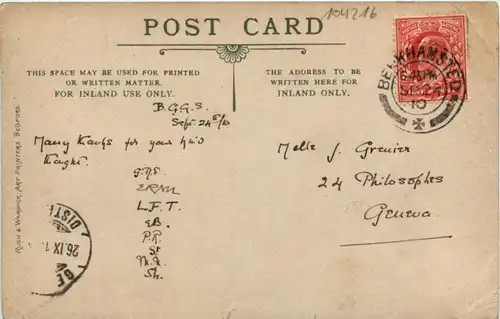 104216
POST CARD
THIS SPACE MAY BE USED FOR PRINTED
OR WRITTEN MATTER.
FOR INLAND USE ONLY.
THE ADDRESS TO BE
WRITTEN HERE FOR
INLAND ONLY.
BERKHAMSTED
6.45PM
SP 24
10
B.G.G.S.
Sept 24th/10
Many thanks for your kind
thought.
L.F.T.
EB.
P.R.
St
Sh.
Melle J. Grenier
24 Philosophes
Geneva
RUSH & WARWICK, ART PRINTERS, BEDFORD.
26.IX.1
DISTR
GE